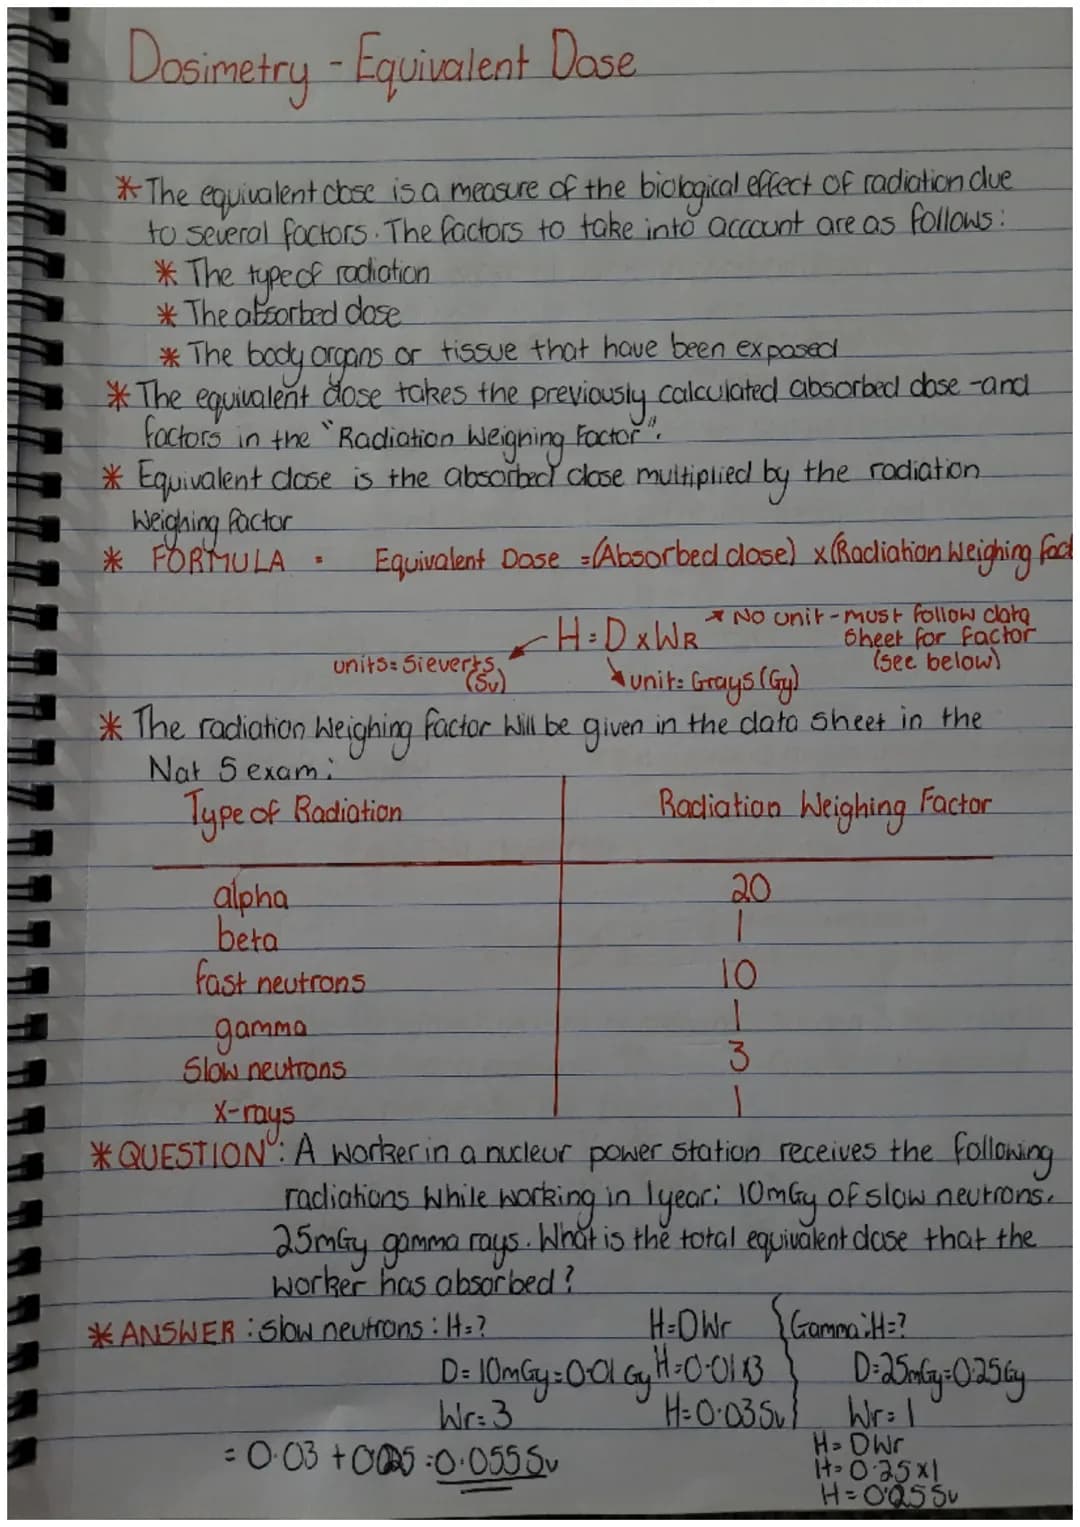 Dosimetry - Equivalent Dose
* The equivalent dose is a measure of the biological effect of radiation due
to several factors. The factors to take into account are as follows:
* The type of radiation
* The absorbed dose
* The body organs or tissue that have been exposed
* The equivalent dose takes the previously calculated absorbed dose -and
factors in the "Radiation Weighing Factor".
* Equivalent dose is the absorbed dose multiplied by the radiation
Weighing factor
* FORMULA = Equivalent Dose =(Absorbed dose) x (Radiation Weighing fact
H=DxWR
* No unit - must follow data
sheet for factor
(see below)
units: Sieverts
(Sv)
unit: Grays (Gy)
* The radiation Weighing factor Will be given in the data sheet in the
Nat 5 exam:
Type of Radiation Radiation Weighing Factor
alpha 20
beta 1
fast neutrons 10
gamma 1
Slow neutrons 3
x-rays 1
* QUESTION: A worker in a nuclear power station receives the following
radiations While working in 1 year: 10mGy of slow neutrons.
25mGy gamma rays. What is the total equivalent dose that the
worker has absorbed?
* ANSWER: Slow neutrons: H=? H=DWr Gamma: H=?
D=10mGy=0.01 Gy H=0.01x3 D=25mGy=0.25Gy
Wr=3 H=0.03Sv Wr=1
H=DWr
H=0.25x1
H=0.025Sv
=0.03 + 0.025 = 0.055Sv